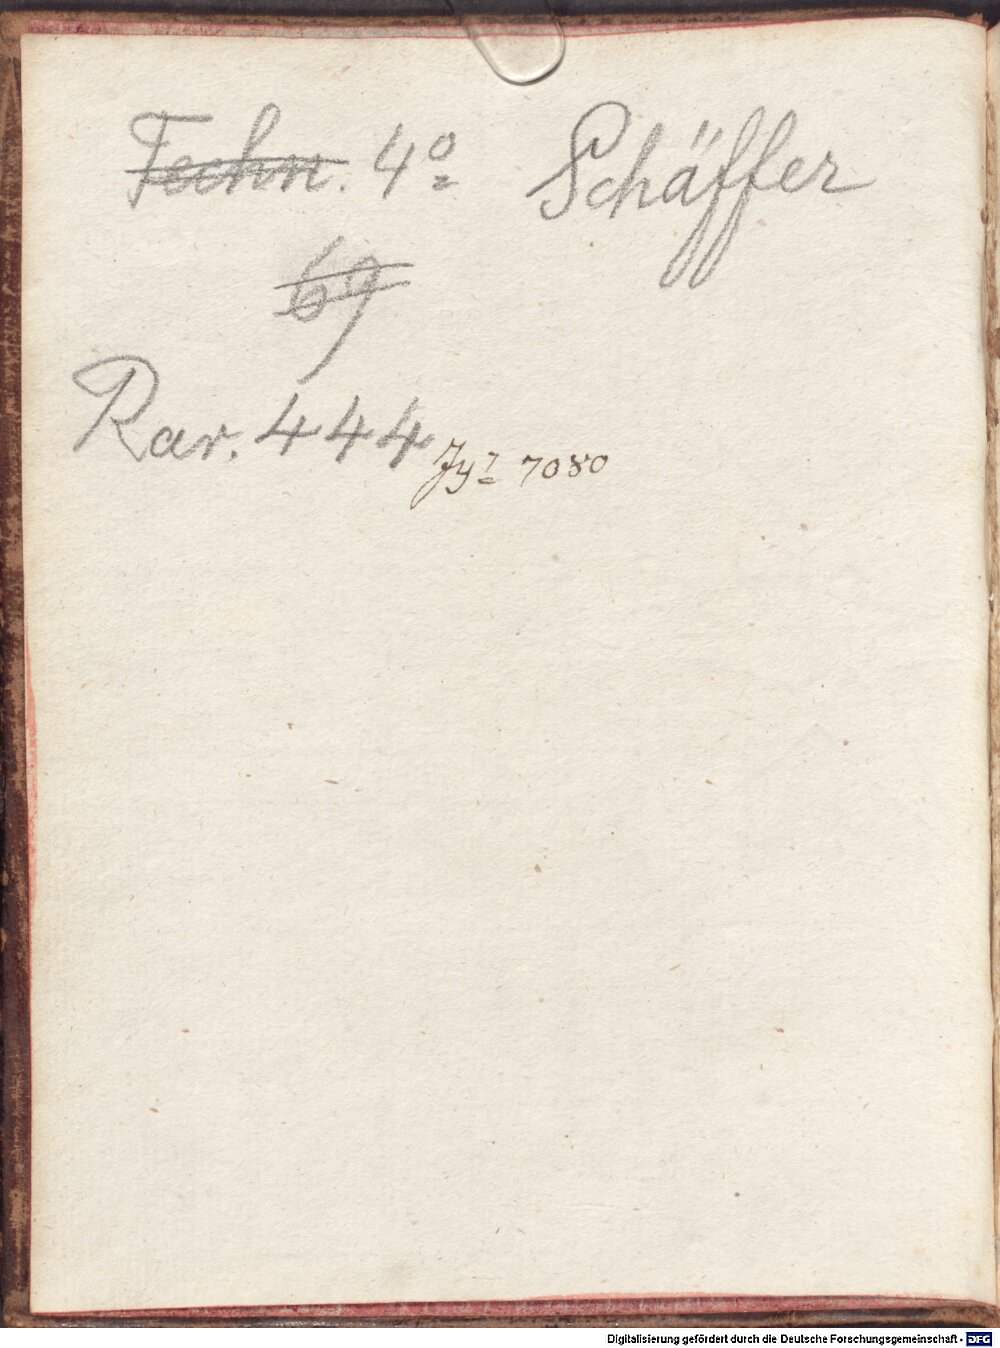 Techn. 4º Schäffer
69
Rar. 444
7080
Digitalisierung gefördert durch die Deutsche Forschungsgemeinschaft - DFG